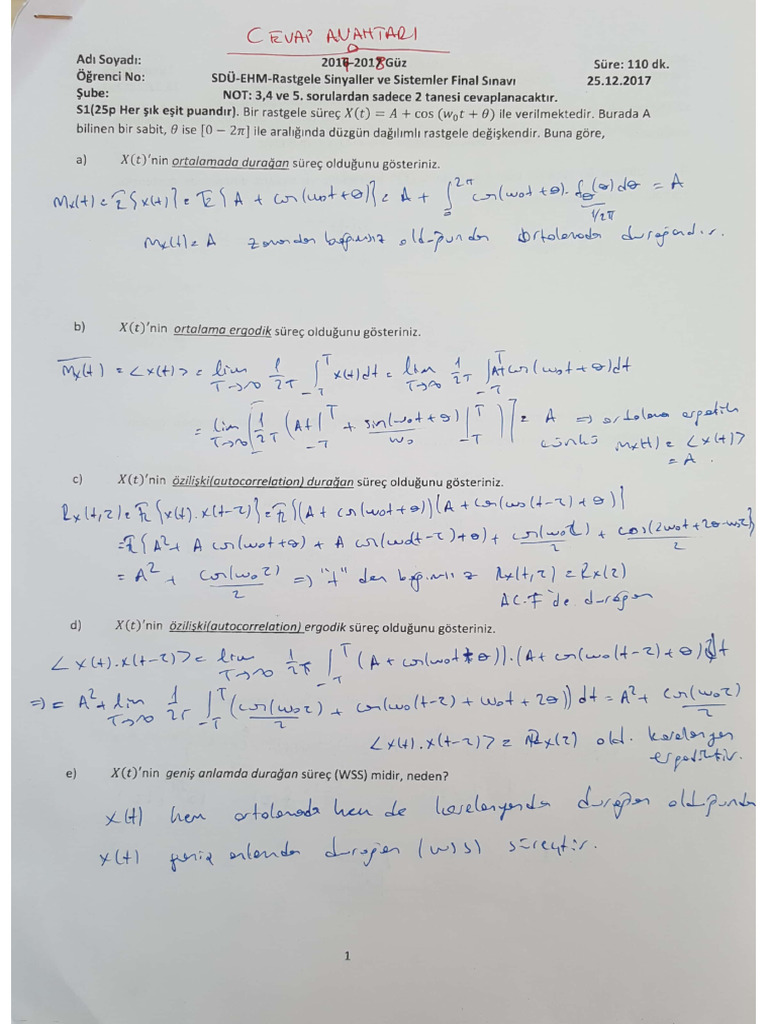 CEVAP ANAHTARI
Adı Soyadı: 2017-2018 Güz Süre: 110 dk.
Öğrenci No: SDÜ-EHM-Rastgele Sinyaller ve Sistemler Final Sınavı 25.12.2017
Şube: NOT: 3,4 ve 5. sorulardan sadece 2 tanesi cevaplanacaktır.
S1(25p Her şık eşit puandır). Bir rastgele süreç X(t) = A + cos (w₀t + θ) ile verilmektedir. Burada A
bilinen bir sabit, θ ise [0 − 2π] ile aralığında düzgün dağılımlı rastgele değişkendir. Buna göre,
a) X(t)'nin ortalamada durağan süreç olduğunu gösteriniz.
Mx(t) = E{x(t)} = E{A + cos(w₀t+θ)} = A + ∫₀^2π cos(w₀t+θ). fθ(θ)dθ = A
1/2π
Mx(t) = A zamandan bağımsız olduğundan ortalamada durağandır.
b) X(t)'nin ortalama ergodik süreç olduğunu gösteriniz.
Mx(t) = <x(t)> = lim T→∞ 1/2T ∫₋T^T x(t)dt = lim T→∞ 1/2T ∫₋T^T A+cos(w₀t+θ)dt
= lim T→∞ [1/2T (At|₋T^T + sin(w₀t+θ)/w₀ |₋T^T)] = A => ortalama ergodik
çünkü Mx(t) = <x(t)>
= A.
c) X(t)'nin özilişki(autocorrelation) durağan süreç olduğunu gösteriniz.
Rx(t,τ) = E{x(t).x(t-τ)} = E{(A + cos(w₀t+θ))(A+cos(w₀(t-τ)+θ)}
= E{A² + A cos(w₀t+θ) + A cos(w₀(t-τ)+θ) + cos(w₀τ)/2 + cos(2w₀t+2θ-w₀τ)/2
= A² + cos(w₀τ)/2 => "t" den bağımsız Rx(t,τ) = Rx(τ)
A.C.F de durağan
d) X(t)'nin özilişki(autocorrelation) ergodik süreç olduğunu gösteriniz.
<x(t).x(t-τ)> = lim T→∞ 1/2T ∫₋T^T (A+cos(w₀t+θ)).(A+cos(w₀(t-τ)+θ))dt
=> = A² + lim T→∞ 1/2T ∫₋T^T (cos(w₀τ)/2 + cos(w₀(t-τ) + w₀t + 2θ)) dt = A² + cos(w₀τ)/2
<x(t).x(t-τ)> = Rx(τ) old. korelasyon
ergodiktir.
e) X(t)'nin geniş anlamda durağan süreç (WSS) midir, neden?
x(t) hem ortalamada hem de korelasyonda durağan olduğundan
x(t) geniş anlamda durağan (WSS) süreçtir.
1